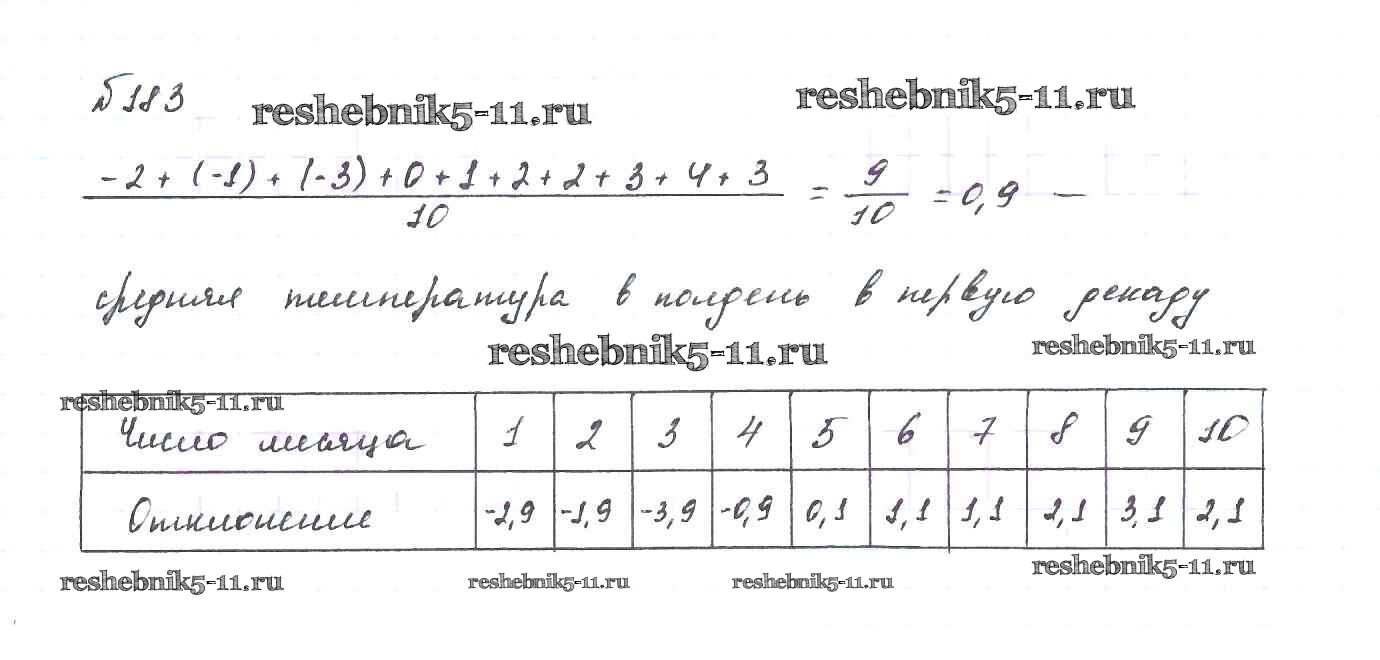 №183
reshebnik5-11.ru reshebnik5-11.ru
-2 + (-1) + (-3) + 0 + 1 + 2 + 2 + 3 + 4 + 3 / 10 = 9/10 = 0,9 —
средняя температура в полдень в первую декаду
reshebnik5-11.ru reshebnik5-11.ru
reshebnik5-11.ru
Число месяца 1 2 3 4 5 6 7 8 9 10
Отклонение -2,9 -1,9 -3,9 -0,9 0,1 1,1 1,1 2,1 3,1 2,1
reshebnik5-11.ru reshebnik5-11.ru reshebnik5-11.ru reshebnik5-11.ru